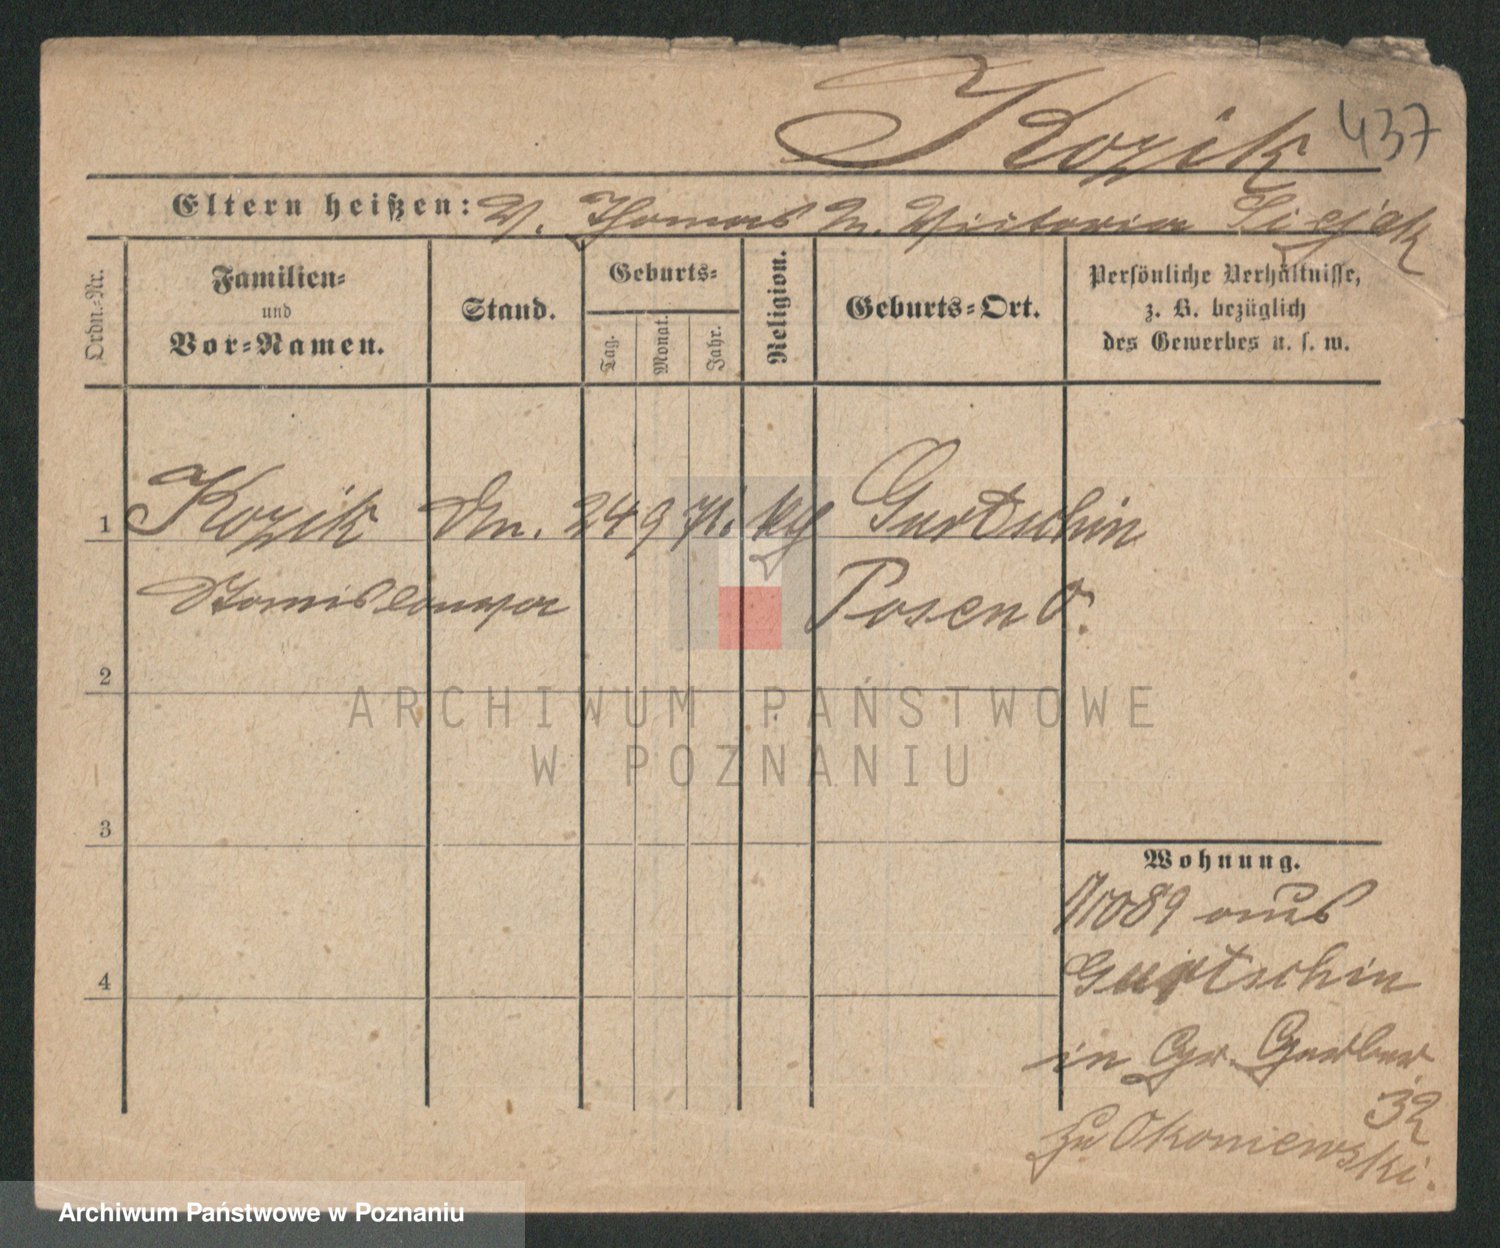 Kozik 437
Eltern heißen: V. Thomas M. Victoria
Ordn.-Nr.
Familien-
und
Vor-Namen.
Stand.
Geburts-
Tag.
Monat.
Jahr.
Religion.
Geburts-Ort.
Persönliche Verhältnisse,
z. B. bezüglich
des Gewerbes u. s. w.
1 Kozik 24 9 71. Gurtschin
Stanislawa Posen O.
2
3
4
Wohnung.
89 aus
Gurtschin
in Gr. Gerber
32
zu Okoniewski.
ARCHIWUM PAŃSTWOWE
W POZNANIU
Archiwum Państwowe w Poznaniu